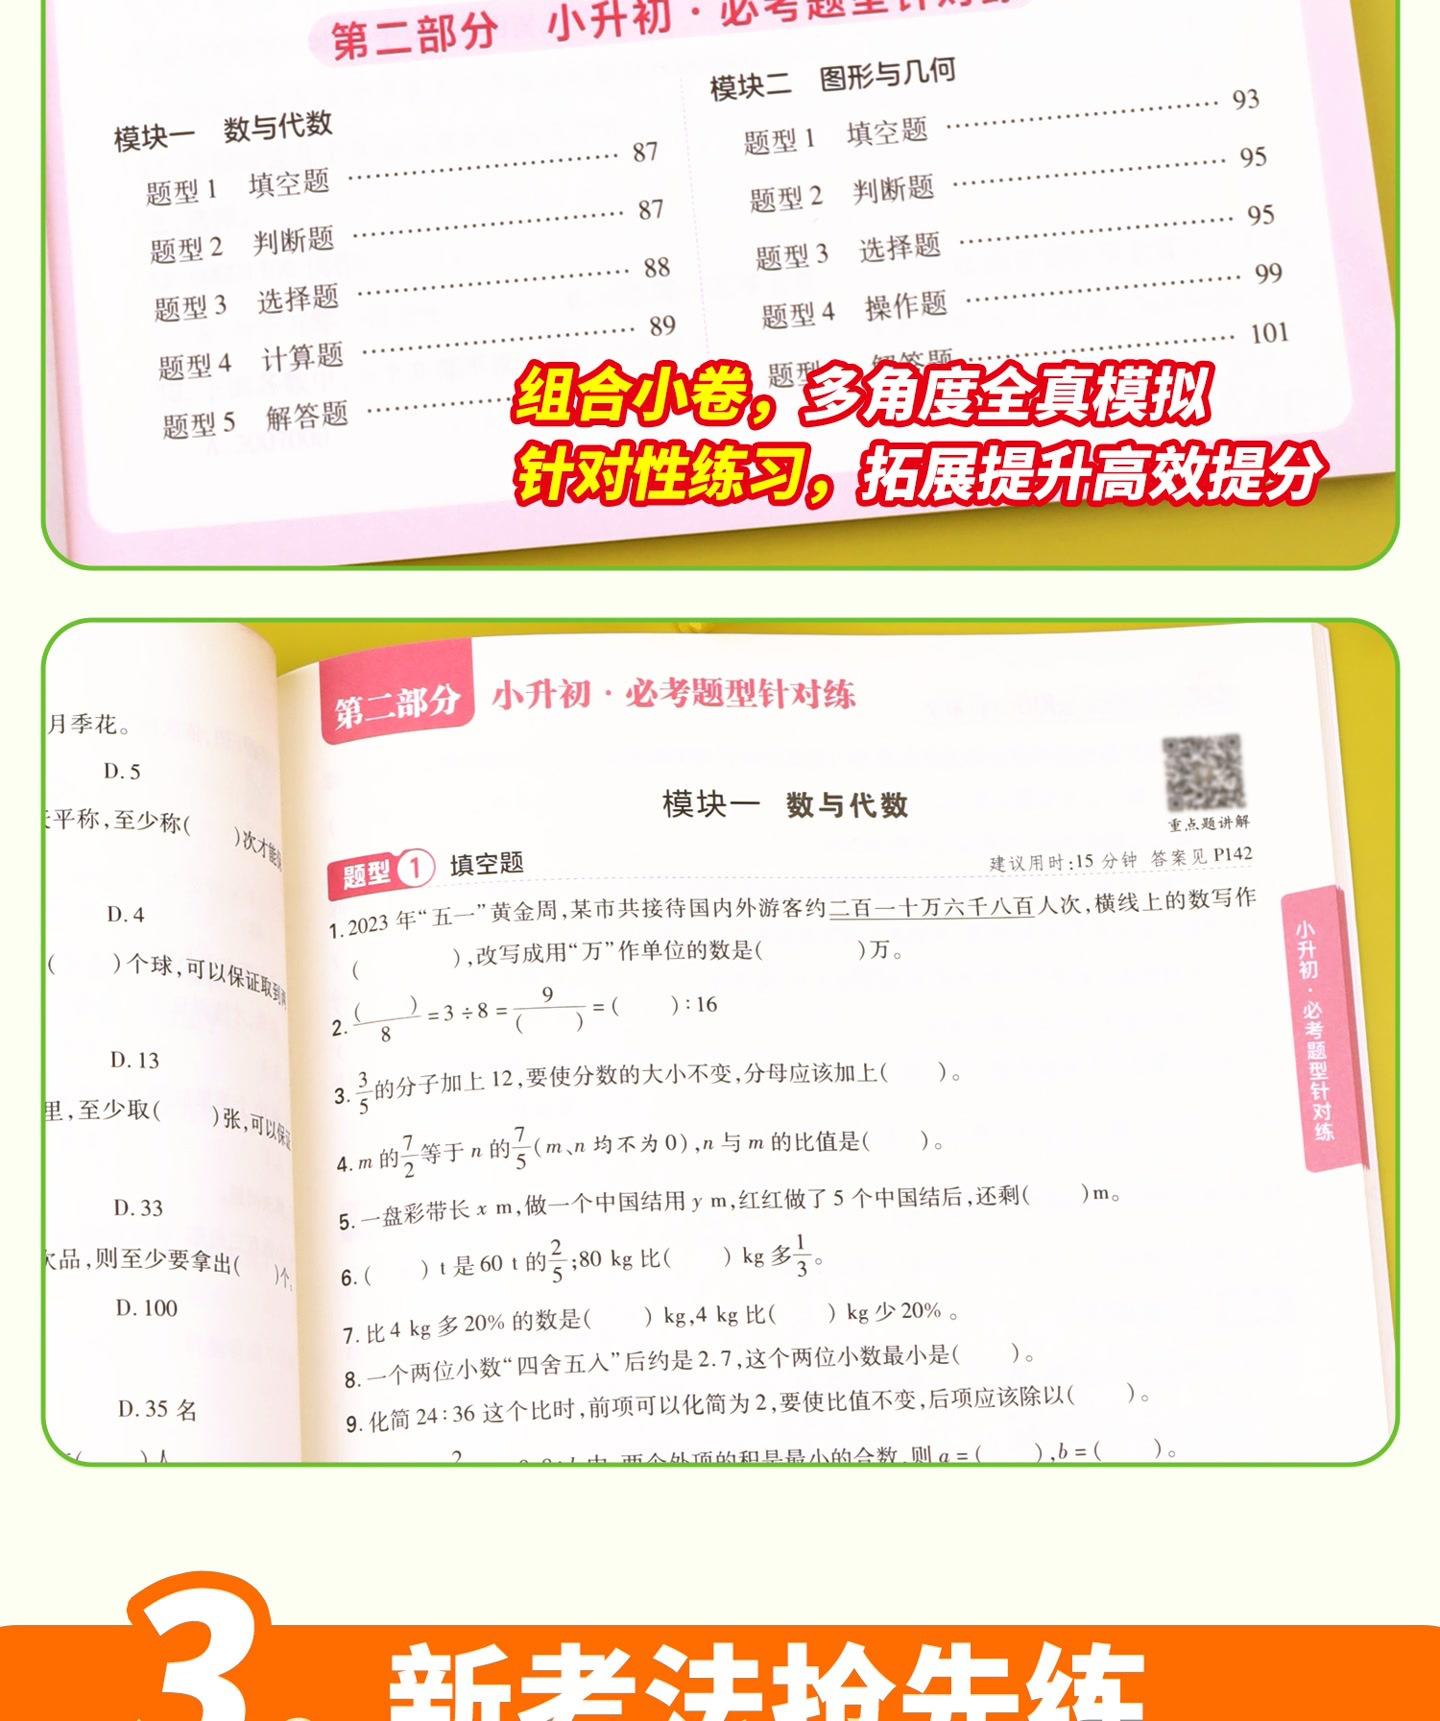 第二部分 小升初·必考题型针对练
模块一 数与代数
题型1 填空题 87
题型2 判断题 87
题型3 选择题 88
题型4 计算题 89
题型5 解答题
模块二 图形与几何
题型1 填空题 93
题型2 判断题 95
题型3 选择题 95
题型4 操作题 99
题型 解答题 101
组合小卷，多角度全真模拟
针对性练习，拓展提升高效提分
月季花。
D.5
天平称,至少称( )次才能
D.4
( )个球,可以保证取到
D.13
里,至少取( )张,可以保证
D.33
次品,则至少要拿出( )个
D.100
D.35 名
( )人
第二部分 小升初·必考题型针对练
重点题讲解
模块一 数与代数
题型1 填空题
建议用时:15 分钟 答案见 P142
1.2023 年“五一”黄金周,某市共接待国内外游客约二百一十万六千八百人次,横线上的数写作
( ),改写成用“万”作单位的数是( )万。
2.( )/8=3÷8=9/( )=( ):16
3.3/5的分子加上 12,要使分数的大小不变,分母应该加上( )。
4.m 的7/2等于 n 的7/5(m、n 均不为 0),n 与 m 的比值是( )。
5.一盘彩带长 x m,做一个中国结用 y m,红红做了 5 个中国结后,还剩( )m。
6.( ) t 是 60 t 的2/5;80 kg 比( ) kg 多1/3。
7.比 4 kg 多 20% 的数是( ) kg,4 kg 比( ) kg 少 20% 。
8.一个两位小数“四舍五入”后约是 2.7,这个两位小数最小是( )。
9.化简 24:36 这个比时,前项可以化简为 2,要使比值不变,后项应该除以( )。
中,两个外项的积是最小的合数,则 a=( ),b=( )。
小升初·必考题型针对练
3.新考法抢先练